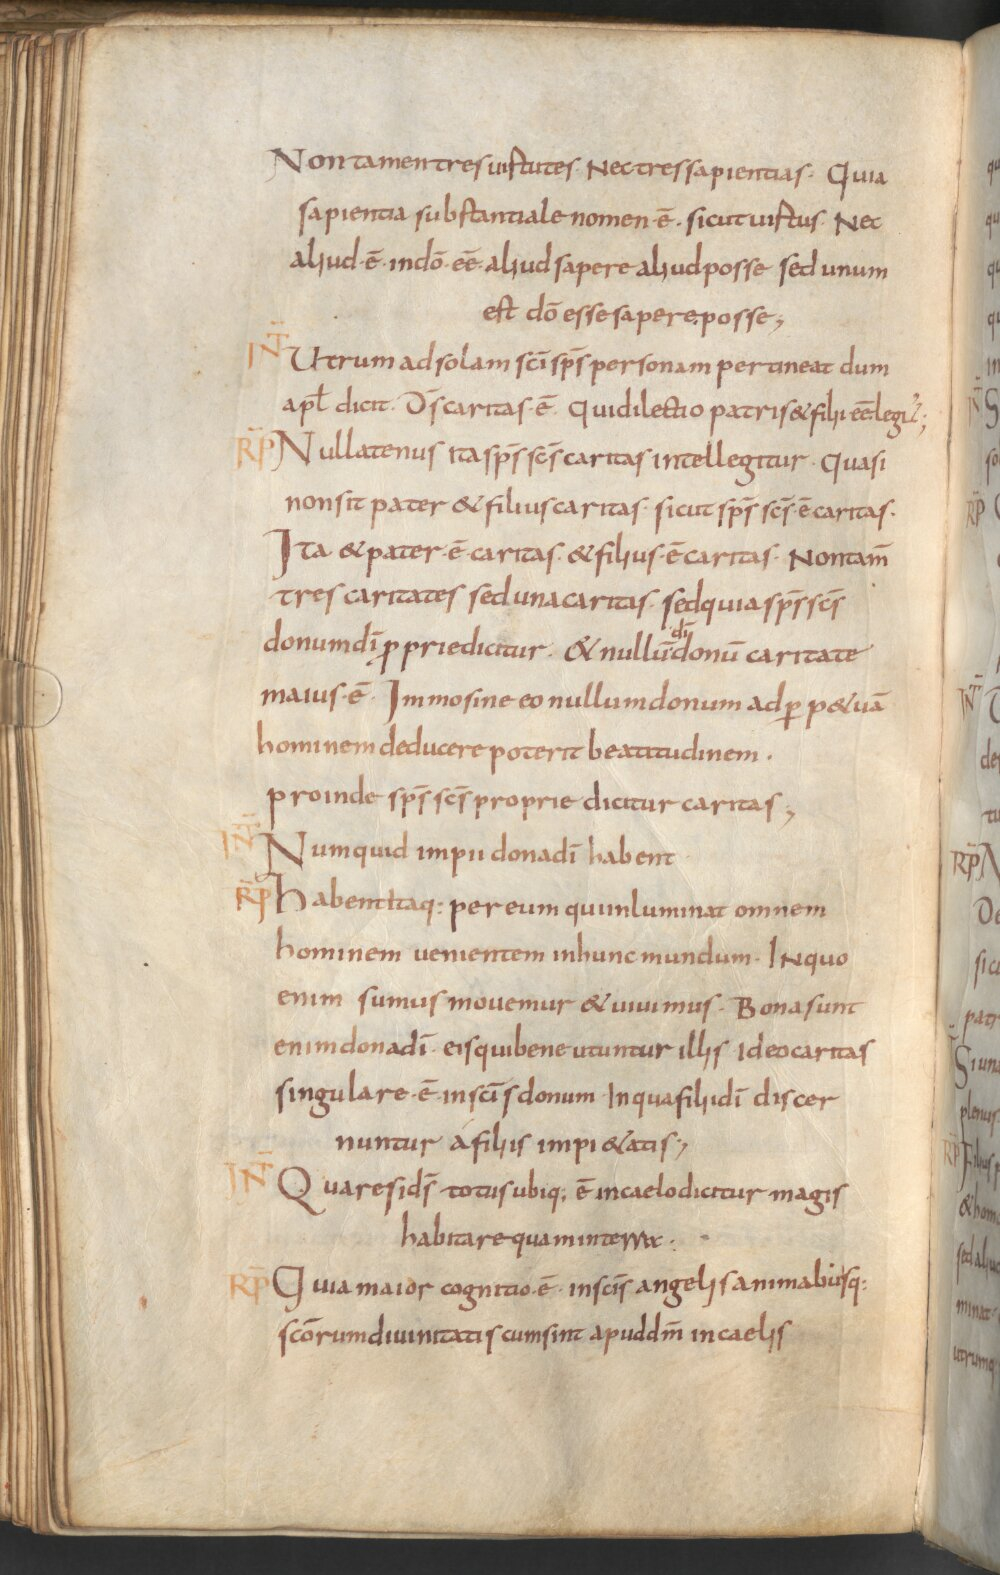 Non tamen tres uirtutes. Nec tres sapientias. Quia
sapientia substantiale nomen ē. sicut uirtus. Nec
aliud ē. in dō. eē. aliud sapere aliud posse sed unum
est dō esse sapere. posse;
INT̄ Utrum ad solam sc̄i sp̄s personam pertineat dum
apl̄ dicit. D̄s caritas ē. Qui dilectio patris & filii eē legit̄;
R̄P Nullatenus ita sp̄s sc̄s caritas intellegitur. Quasi
non sit pater & filius caritas. sicut sp̄s sc̄s ē caritas.
Ita & pater ē caritas. & filius ē caritas. Non tam̄
tres caritates sed una caritas. sed quia sp̄s sc̄s
donum dī ꝓprie dicitur. & nullū dī donū caritate
maius ē. Immo sine eo nullum donum ad ꝑp&uā
hominem deducere poterit beatitudinem.
proinde sp̄s sc̄s proprie dicitur caritas;
INT̄ Numquid impii dona dī habent
R̄P Habent itaq: per eum qui inluminat omnem
hominem uenientem in hunc mundum. In quo
enim sumus mouemur & uiuimus. Bona sunt
enim dona dī. eis qui bene utuntur illis. Ideo caritas
singulare ē. in sc̄is donum. In qua filii dī discer
nuntur a filiis impi&atis;
INT̄ Quare si d̄s totus ubiq; ē in caelo dicitur magis
habitare quam in terra.
R̄P Quia maior cognitio ē. in sc̄is angelis animabusq:
sc̄orum diuinitatis cum sint apud dm̄ in caelis